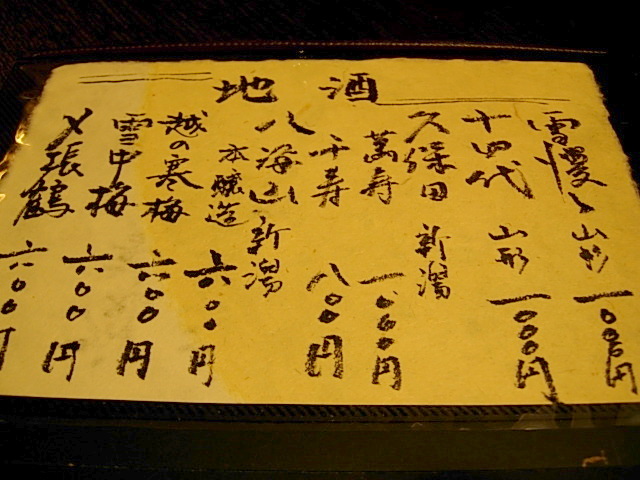 地酒
雪漫々 山形 一、〇〇〇円
十四代 山形 一、〇〇〇円
久保田 新潟
萬寿 一、〇〇〇円
千寿 八〇〇円
八海山 新潟
本醸造 六〇〇円
越の寒梅 六〇〇円
雪中梅 六〇〇円
〆張鶴 六〇〇円